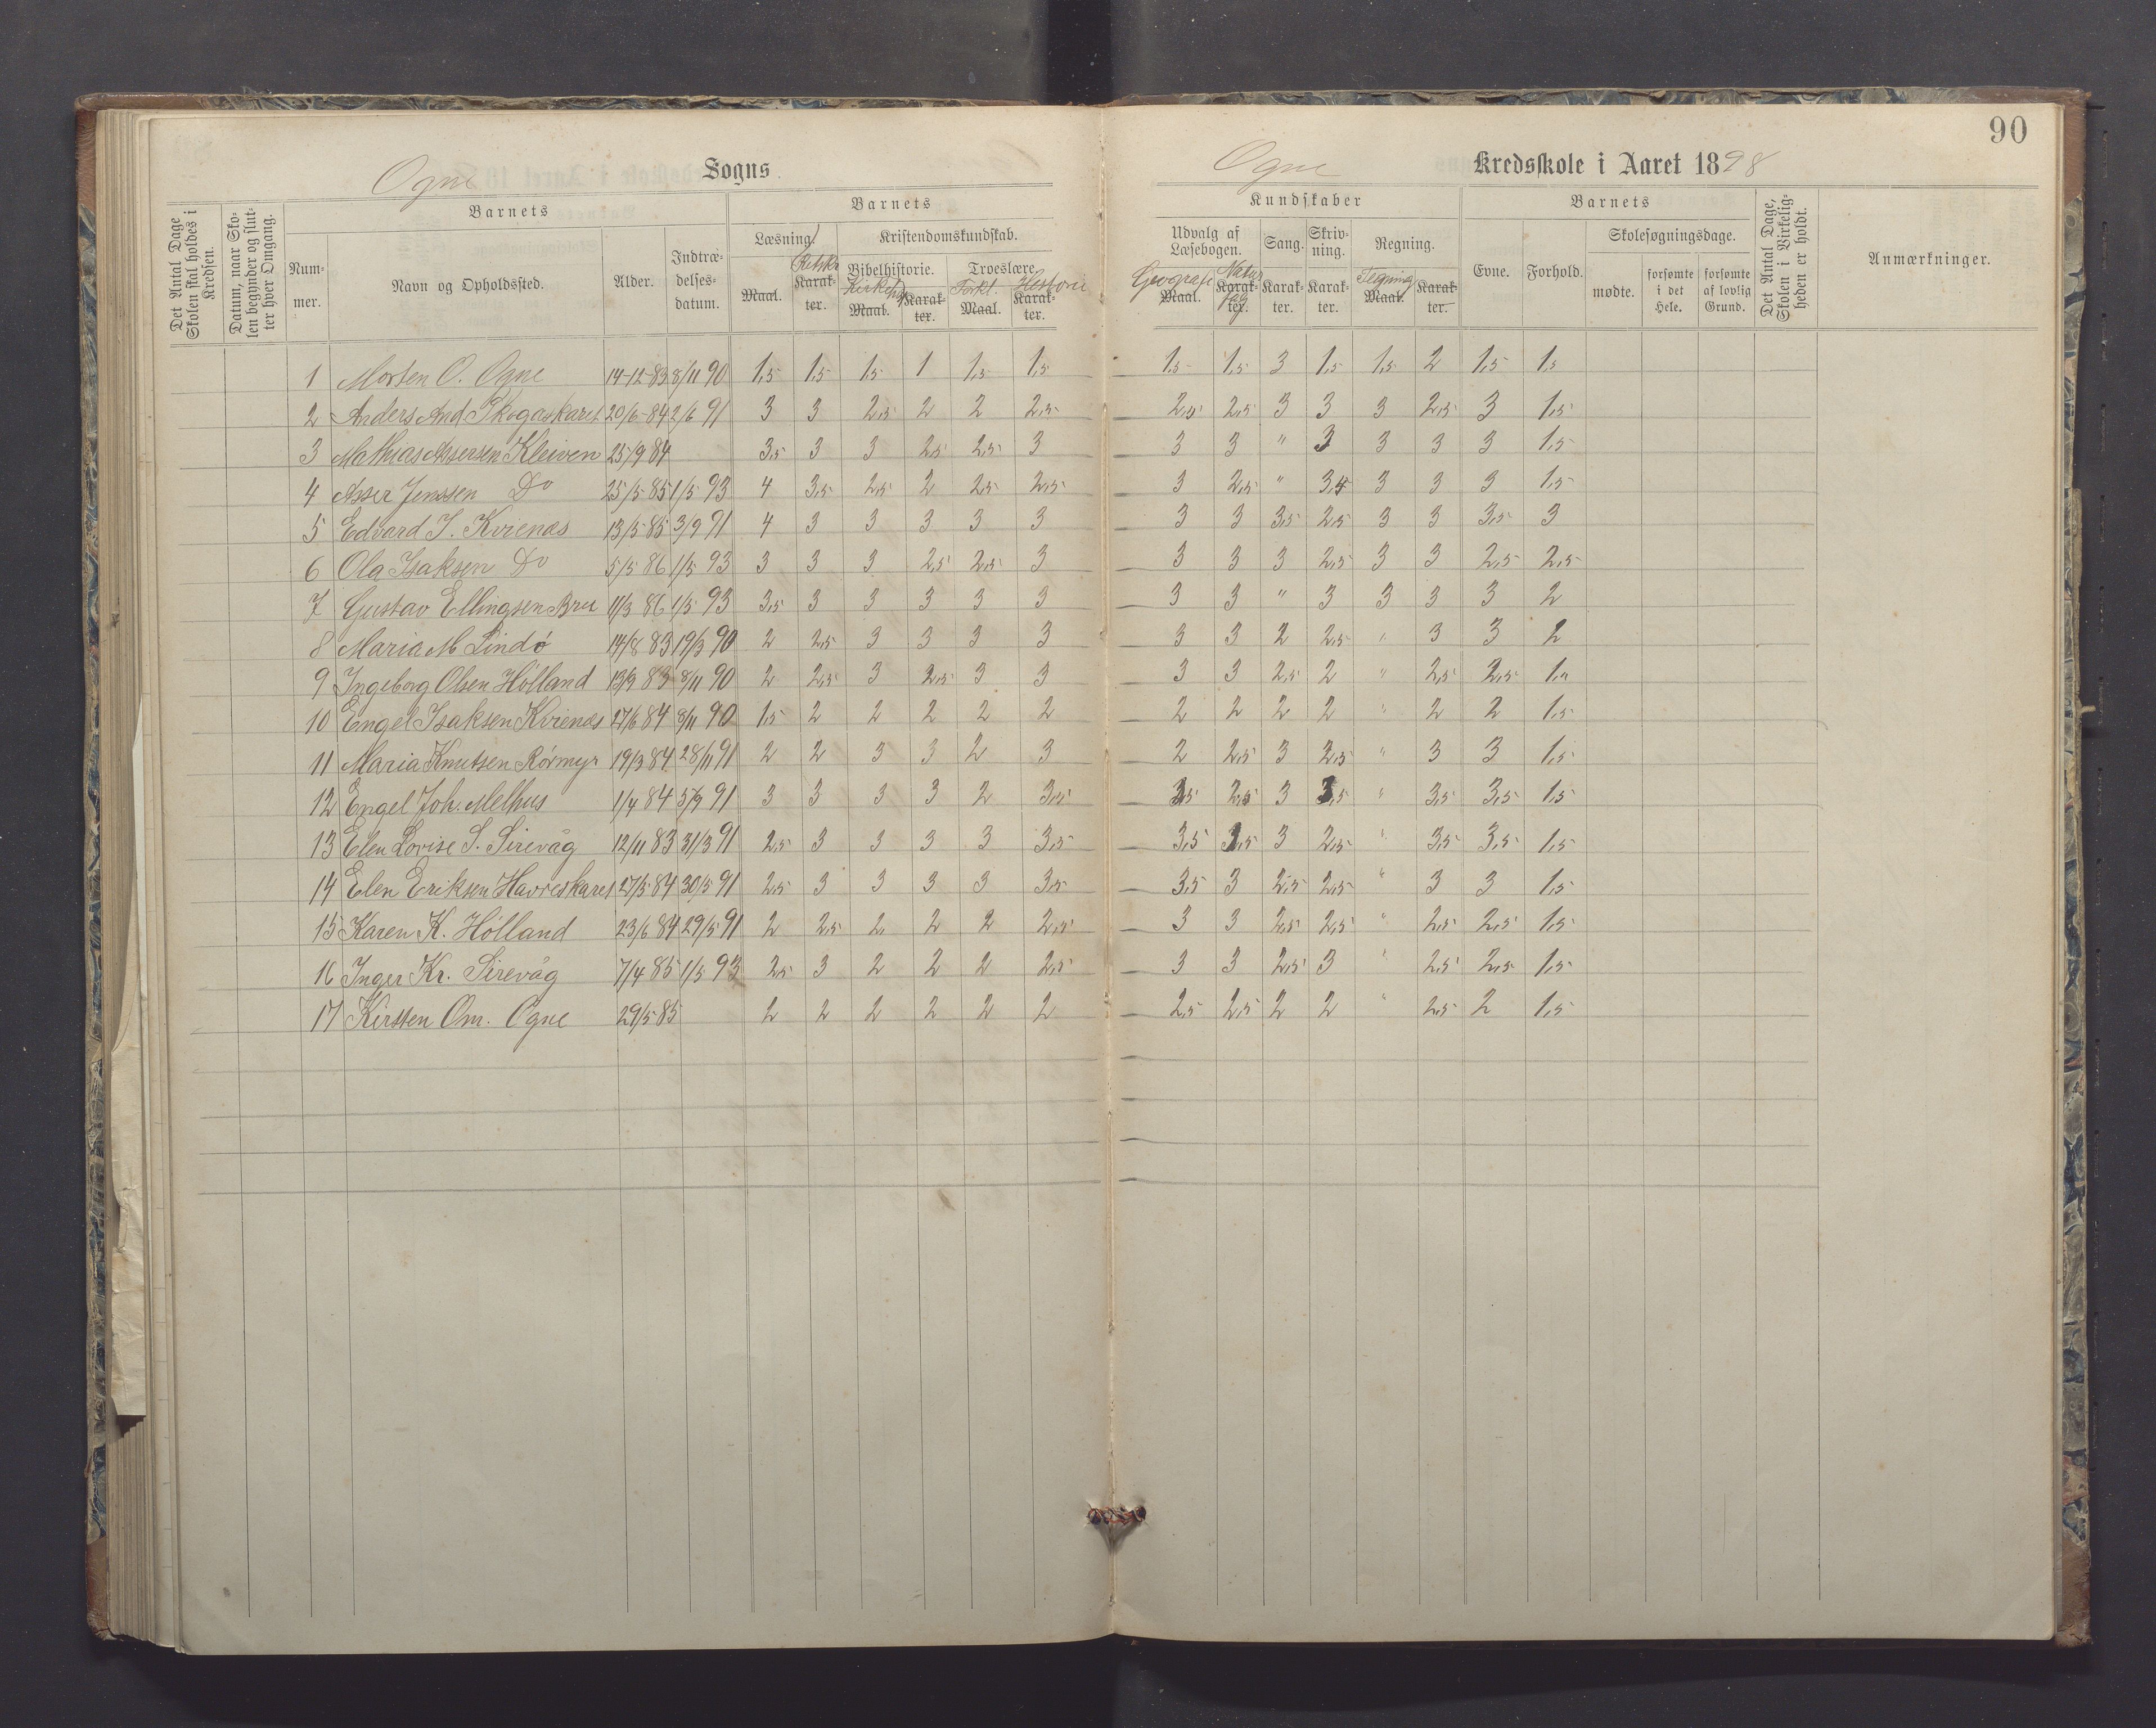 90
Ogne Sogns Ogne Kredsskole i Aaret 1898
Det Antal Dage Skolen skal holdes i Kredsen.
Datum, naar Skolen begynder og slutter hver Omgang.
Barnets
Nummer.
Navn og Opholdssted.
Alder.
Indtrædelsesdatum.
Barnets
Læsning.
Maal.
Retskr Karakter.
Kristendomskundskab.
Bibelhistorie.
Maal.
Karakter.
Troeslære.
Forkl. Maal.
Historie Karakter.
Kundskaber
Udvalg af Læsebogen.
Geografi Maal.
Naturfag Karakter.
Sang.
Karakter.
Skrivning.
Karakter.
Regning.
Tegning Maal.
Karakter.
Barnets
Evne.
Forhold.
Skolesøgningsdage.
mødte.
forsømte i det Hele.
forsømte af lovlig Grund.
Det Antal Dage, Skolen i Virkeligheden er holdt.
Anmærkninger.
1 Morten O. Ogne 14-12-83 8/11 90 1,5 1,5 1,5 1 1,5 1,5 1,5 1,5 3 1,5 1,5 2 1,5 1,5
2 Anders And Skogaskaret 20/6-84 2/6 91 3 3 2,5 2 2 2,5 2,5 2,5 3 3 3 2,5 3 1,5
3 Mathias Assersen Kleiven 25/9 84 3,5 3 3 2,5 2,5 3 3 3 " 3 3 3 3 1,5
4 Asser Jenssen Do 25/5 85 1/5 93 4 3,5 2,5 2 2,5 2,5 3 2,5 " 3,5 3 3 3 1,5
5 Edvard I. Kvienæs 13/5 85 3/9 91 4 3 3 3 3 3 3 3 3,5 2,5 3 3 3,5 3
6 Ola Isaksen Do 5/5 86 1/5 93 3 3 3 2,5 2,5 3 3 3 3 2,5 3 3 2,5 2,5
7 Gustav Ellingsen Bru 11/3 86 1/5 93 3,5 3 3 3 3 3 3 3 " 3 3 3 3 2
8 Maria M Lindø 14/8 83 19/3 90 2 2,5 3 3 3 3 3 3 2 2,5 " 3 3 2
9 Ingeborg Olsen Hölland 13/9 83 8/11 90 2 2,5 3 2,5 3 3 3 3 2,5 2 " 2,5 2,5 1,"
10 Engel Isaksen Kvienæs 27/6 84 8/11 90 1,5 2 2 2 2 2 2 2 2 2 " 2 2 1,5
11 Maria Knutsen Rörmyr 19/3 84 28/11 91 2 2 3 3 2 3 2 2,5 3 2,5 " 3 3 1,5
12 Engel Joh. Melhus 1/4 84 3/9 91 3 3 3 3 2 3,5 3,5 2,5 3 3,5 " 3,5 3,5 1,5
13 Elen Lovise S. Sirevåg 12/11 83 31/3 91 2,5 3 3 3 3 3,5 3,5 3,5 3 2,5 " 3,5 3,5 1,5
14 Elen Eriksen Havreskaret 27/5 84 30/5 91 2,5 3 3 3 3 3,5 3,5 3 2,5 2,5 " 3 3 1,5
15 Karen K. Hölland 23/6 84 29/5 91 2 2,5 2 2 2 2,5 3 3 2,5 2,5 " 2,5 2,5 1,5
16 Inger Kr. Sirevåg 7/4 85 1/5 93 2,5 3 2 2 2 2,5 3 3 2,5 3 " 2,5 2,5 1,5
17 Kirsten Om. Ogne 29/5 85 2 2 2 2 2 2 2,5 2,5 2 2 " 2,5 2 1,5